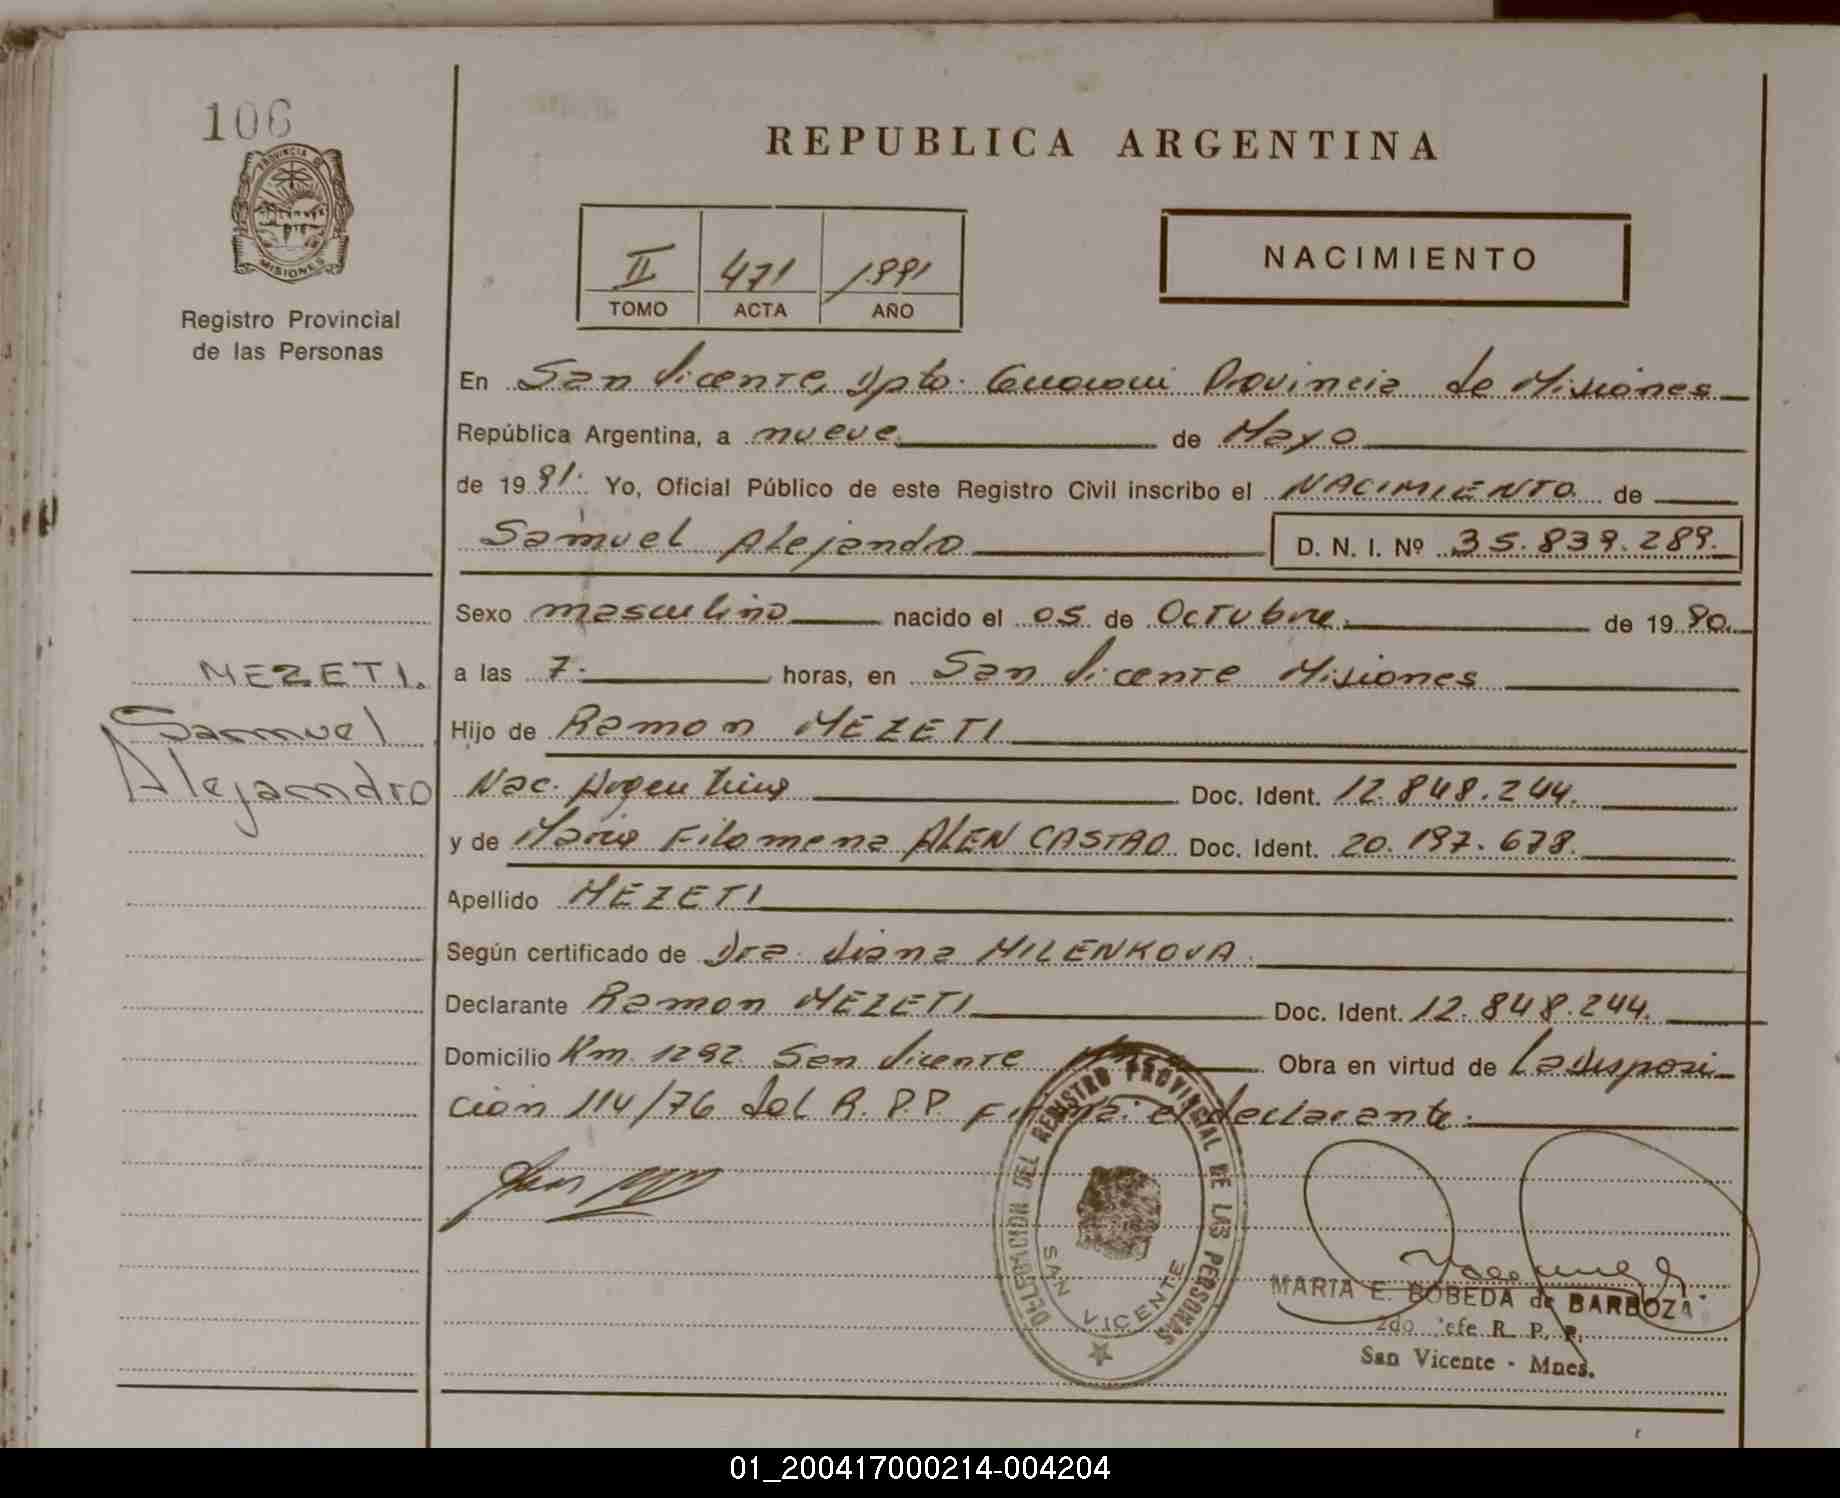 106
PROVINCIA DE
MISIONES
Registro Provincial
de las Personas
REPUBLICA ARGENTINA
II 471 1991
TOMO ACTA AÑO
NACIMIENTO
En San Vicente, Dpto. Guarani Provincia de Misiones
República Argentina, a nueve de Mayo
de 1991. Yo, Oficial Público de este Registro Civil inscribo el NACIMIENTO de
Samuel Alejando D. N. I. Nº 35.839.289.
Sexo masculino nacido el 05 de Octubre de 1990.
MEZETI.
a las 7. horas, en San Vicente Misiones
Samuel
Hijo de Ramon MEZETI
Alejandro
Nac. Argentina Doc. Ident. 12.848.244.
y de Maria Filomena ALEN CASTRO Doc. Ident. 20.197.678.
Apellido MEZETI
Según certificado de Dra. Diana MILENKOVA.
Declarante Ramon MEZETI Doc. Ident. 12.848.244.
Domicilio Km. 1292. San Vicente Obra en virtud de La disposi
ción 114/76 del R.P.P. Firma: el declarante.
DELEGACION DEL REGISTRO PROVINCIAL DE LAS PERSONAS
SAN VICENTE
MARIA E. BOBEDA de BARBOZA
2do Jefe R. P. P.
San Vicente - Mnes.
01_200417000214-004204